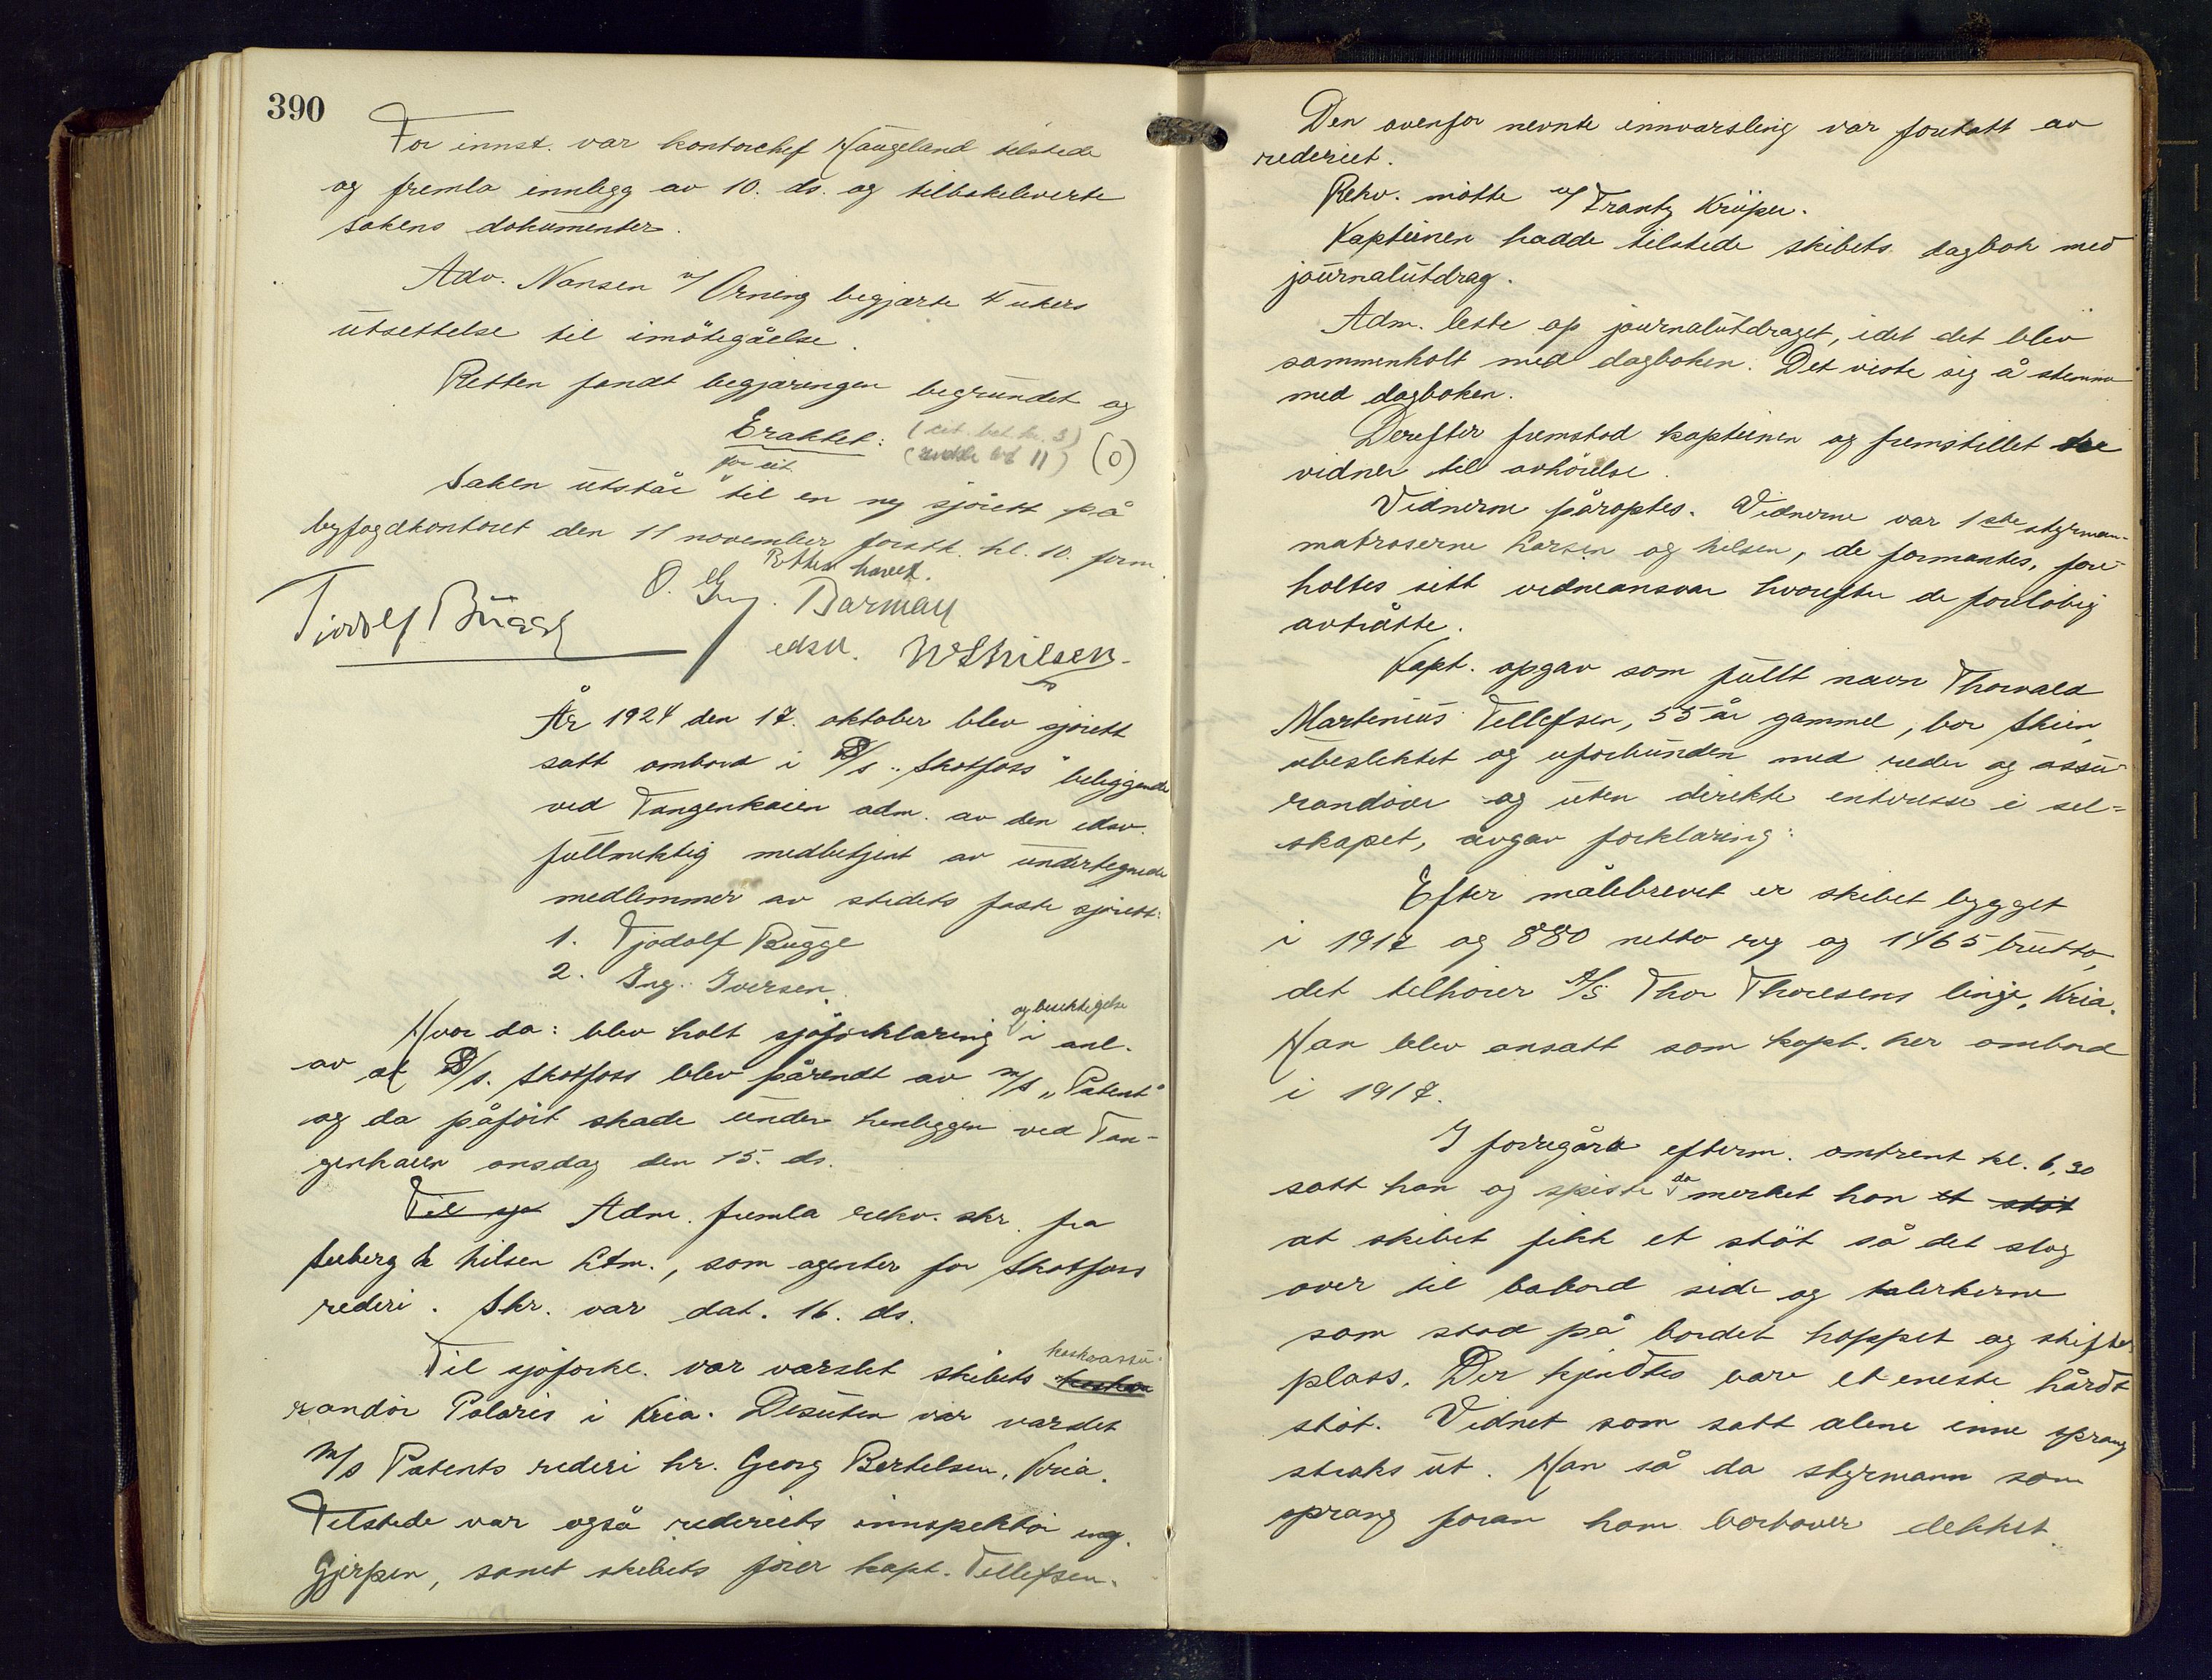 390
For innst. var kontorchef Haugeland tilstede
og fremla innlegg av 10. ds. og tilbakeleverte
sakens dokumenter.
Adv. Nansen v/ Orning begjærte 4 ukers
utsettelse til imötegåelse.
Retten fandt begjæringen begrundet og
Eraktet:
(0)
Saken utstår for eit. til en ny sjörett på
byfogdkontoret den 11 november førstk. kl. 10. form.
Retten hævet.
edsv. W S Nilsen
År 1924 den 17. oktober blev sjörett
satt ombord i D/s. "Skotfoss" beliggende
ved Tangenkaien adm. av den edsv.
fullmektig medbetjent av undertegnede
medlemmer av stedets faste sjörett:
1. Tjodolf Bugge
2. Ing. Iversen.
Hvor da: blev holt sjöforklaring og besiktigelse i anl.
av at D/s. Skotfoss blev pårendt av m/s "Patent"
og da påfört skade under henliggen ved Tan-
genkaien onsdag den 15. ds.
Til sjö Adm. fremla rekv. skr. fra
Seeberg & Nilsen Ltm., som agenter for Skotfoss
rederi. Skr. var dat. 16. ds.
Til sjöforkl. var varslet skibets kaskoassu-
randör Polaris i Kria. Desuten var varslet
M/s Patents rederi hr. Georg Bertelsen, Kria.
Tilstede var også rederiets innspektör ing.
Gjerpen, samt skibets förer kapt. Tellefsen.
Den ovenfor nevnte innvarsling var foretatt av
rederiet.
Rekv. mötte v/ Frantz Kröger.
Kapteinen hadde tilstede skibets dagbok med
journalutdrag.
Adm. leste op journalutdraget, idet det blev
sammenholt med dagboken. Det viste sig å stemme
med dagboken.
Derefter fremstod kapteinen og fremstillet tre
vidner til avhörelse.
Vidnerne påroptes. Vidnerne var 1ste styrman-
matroserne Larsen og Nilsen, de formantes, fore-
holtes sitt vidneansvar hvorefter de foreløbig
avtrådte.
Kapt. opgav som fullt navn Thorvald
Martenius Tellefsen, 55 år gammel, bor Skien,
ubeslektet og uforbunden med reder og assu-
randörer og uten direkte interesse i sel-
skapet, avgav forklaring:
Efter målebrevet er skibet bygget
i 1917 og 880 netto reg og 1465 brutto,
det tilhörer A/S Thor Thoresens linje, Kria.
Han blev ansatt som kapt. her ombord
i 1917.
I forregårs efterm. omtrent kl. 6,30
satt han og spiste da merket han et stöt
at skibet fikk et stöt så det slog
over til babord side og talerkerne
som stod på bordet hoppet og skiftet
plass. Der kjendtes bare et eneste hårdt
stöt. Vidnet som satt alene inne sprang
straks ut. Han så da styrmann som
sprang foran ham bortover dekket.